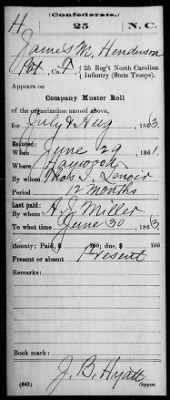 (Confederate.)
H 25 N.C.
James M. Henderson
Pvt, Co. F, 25 Reg't North Carolina
Infantry (State Troops).
Appears on
Company Muster Roll
of the organization named above,
for July & Aug, 1863.
Enlisted:
When June 29, 1861.
Where Haywood
By whom Thos. I. Lenoir
Period 12 months
Last paid:
By whom A. J. Miller
To what time June 30, 1863.
Bounty: Paid, $ 100; due, $ 100
Present or absent Present
Remarks:
Book mark:
J. B. Hyatt
(642) Copyist.